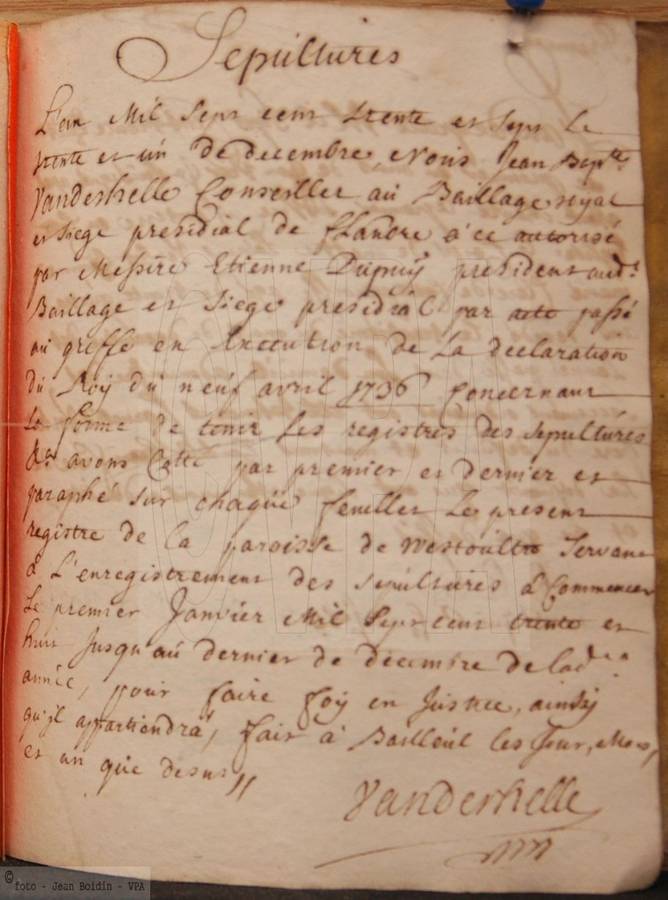 Sepultures
L'an Mil Sept cent trente et sept le
trente et un de decembre Nous Jean Bap.te
Vanderhelle Conseiller au Baillage royal
et siege presidial de flandre a ce autorisé
par Messire Etienne Dupuÿ president aud.t
Baillage et Siege presidial par acte passé
au greffe en Execution de La declaration
du Roÿ du neuf avril 1736 Concernant
La forme de tenir les registres des sepultures
&.a avons Cotté par premier et dernier et
paraphé sur chaque feuillet Le present
registre de la paroisse de Westoultre Servant
a L'enregistrement des sepultures a Commencer
Le premier Janvier Mil Sept cent trente et
huit Jusqu'au dernier de decembre de lad.e
année, pour faire foÿ en Justice, ainsÿ
qu'jl appartiendra, fait a Bailleul les Jour, Mois,
et an que desus //
Vanderhelle
© foto - Jean Boidin - VPA
CVPA